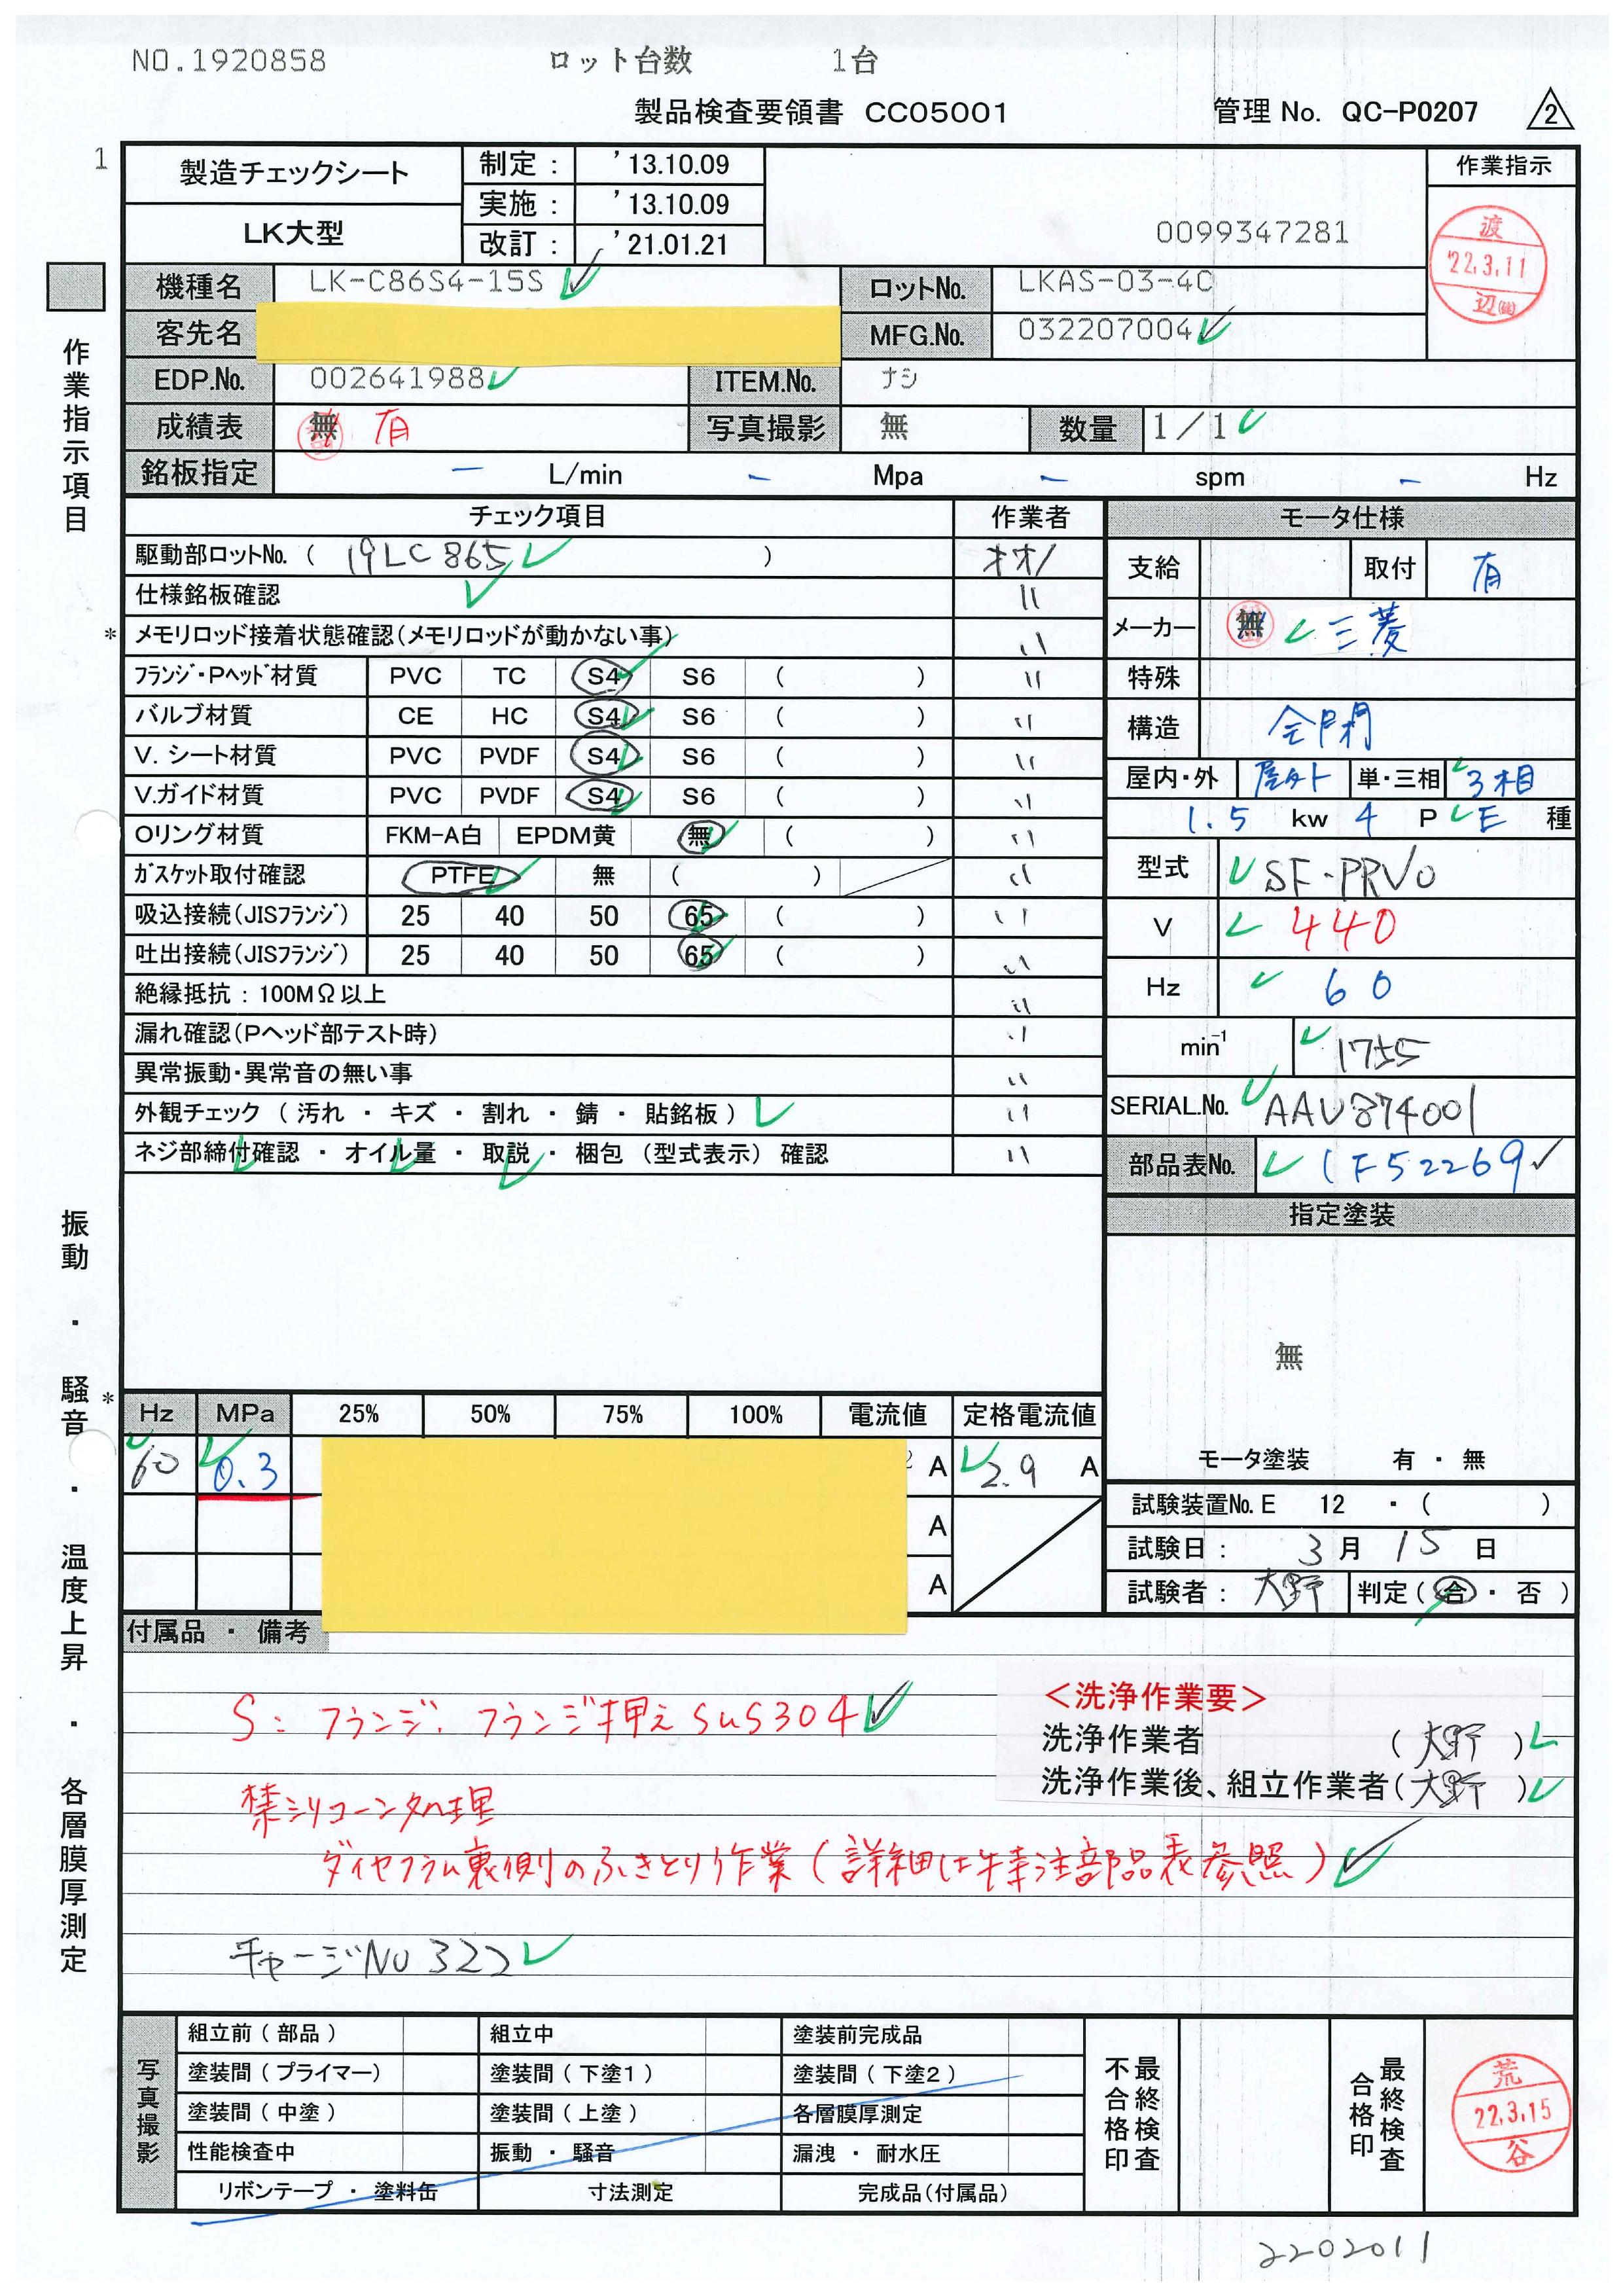 NO.1920858 ロット台数 1台
製品検査要領書 CC05001 管理 No. QC-P0207 2
1
製造チェックシート 制定 : '13.10.09 作業指示
実施 : '13.10.09
LK大型 改訂 : '21.01.21 0099347281
渡 '22.3.11 辺
機種名 LK-C86S4-15S ロットNo. LKAS-03-4C
客先名 MFG.No. 032207004
EDP.No. 002641988 ITEM.No. ナシ
成績表 無 有 写真撮影 無 数量 1/1
銘板指定 - L/min - Mpa - spm - Hz
作業指示項目
チェック項目 作業者 モータ仕様
駆動部ロットNo. ( 19LC865 ) オオノ
仕様銘板確認 〃
* メモリロッド接着状態確認(メモリロッドが動かない事) 〃
フランジ・Pヘッド材質 PVC TC S4 S6 ( ) 〃
バルブ材質 CE HC S4 S6 ( ) 〃
V. シート材質 PVC PVDF S4 S6 ( ) 〃
V.ガイド材質 PVC PVDF S4 S6 ( ) 〃
Oリング材質 FKM-A白 EPDM黄 無 ( ) 〃
ガスケット取付確認 PTFE 無 ( ) 〃
吸込接続(JISフランジ) 25 40 50 65 ( ) 〃
吐出接続(JISフランジ) 25 40 50 65 ( ) 〃
絶縁抵抗 : 100MΩ以上 〃
漏れ確認(Pヘッド部テスト時) 〃
異常振動・異常音の無い事 〃
外観チェック ( 汚れ ・ キズ ・ 割れ ・ 錆 ・ 貼銘板 ) 〃
ネジ部締付確認 ・ オイル量 ・ 取説 ・ 梱包 (型式表示) 確認 〃
支給 取付 有
メーカー 無 三菱
特殊
構造 全閉
屋内・外 屋外 単・三相 3相
1.5 kw 4 P E 種
型式 SF-PRVO
V 440
Hz 60
min-1 1755
SERIAL.No. AAV874001
部品表No. LF52269
指定塗装
無
モータ塗装 有 ・ 無
振動 ・ 騒音 ・ 温度上昇 ・ 各層膜厚測定
* Hz MPa 25% 50% 75% 100% 電流値 定格電流値
60 0.3 A 2.9 A
A
A
試験装置No. E 12 ・ ( )
試験日 : 3 月 15 日
試験者 : 大野 判定 ( 合 ・ 否 )
付属品 ・ 備考
S: フランジ. フランジ押え SUS304
<洗浄作業要>
洗浄作業者 (大野)
洗浄作業後、組立作業者(大野)
禁シリコーン処理
ダイヤフラム裏側のふきとり作業 (詳細は特注部品表参照)
チャージNO 322
写真撮影
組立前 ( 部品 ) 組立中 塗装前完成品
塗装間 ( プライマー) 塗装間 ( 下塗1 ) 塗装間 ( 下塗2 )
塗装間 ( 中塗 ) 塗装間 ( 上塗 ) 各層膜厚測定
性能検査中 振動 ・ 騒音 漏洩 ・ 耐水圧
リボンテープ ・ 塗料缶 寸法測定 完成品(付属品)
最終検査不合格印
最終検査合格印
荒 22.3.15 谷
2202011